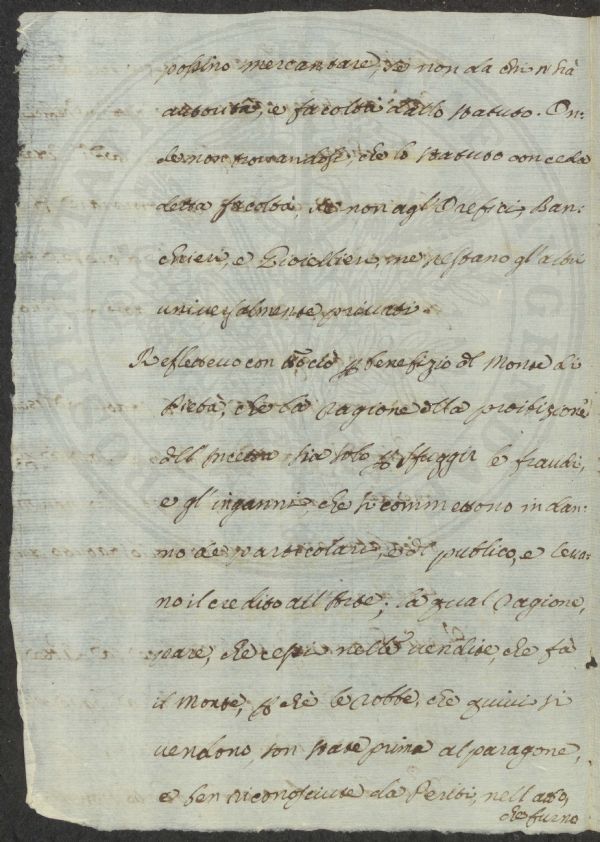 possino mercantare, se non da chi n'hà
autorità, e facoltà dallo statuto. On:
de non trovandosi, che lo statuto conceda
detta facoltà, se non agl'Orefici, Ban:
chieri, e Gioiellieri, ne restano gl'altri
universalmente privati.
Reflettevo con tt.o ciò p benefizio dl Monte di
Pietà, che la ragione dlla proibizione
dll'incetta sia solo p sfuggir le fraudi,
e gl'inganni, che si commettono in dan:
no de particolari, e dl publico, e leva:
no il credito all'Arte; la qual ragione,
pare, che cessi nelle vendite, che fà
il Monte, p chè le robbe, che quivi si
vendono son state prima al paragone,
e ben riconosciute da Periti, nell'atto,
che furno